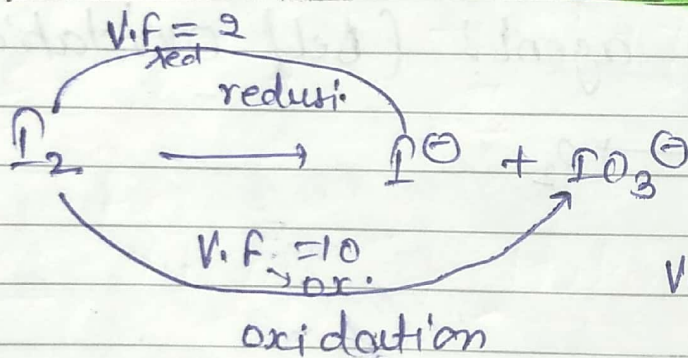 V.f = 2
red
redusi.
I₂ ⟶ I⊖ + IO₃⊖
V.f. = 10
ox.
V
oxidation